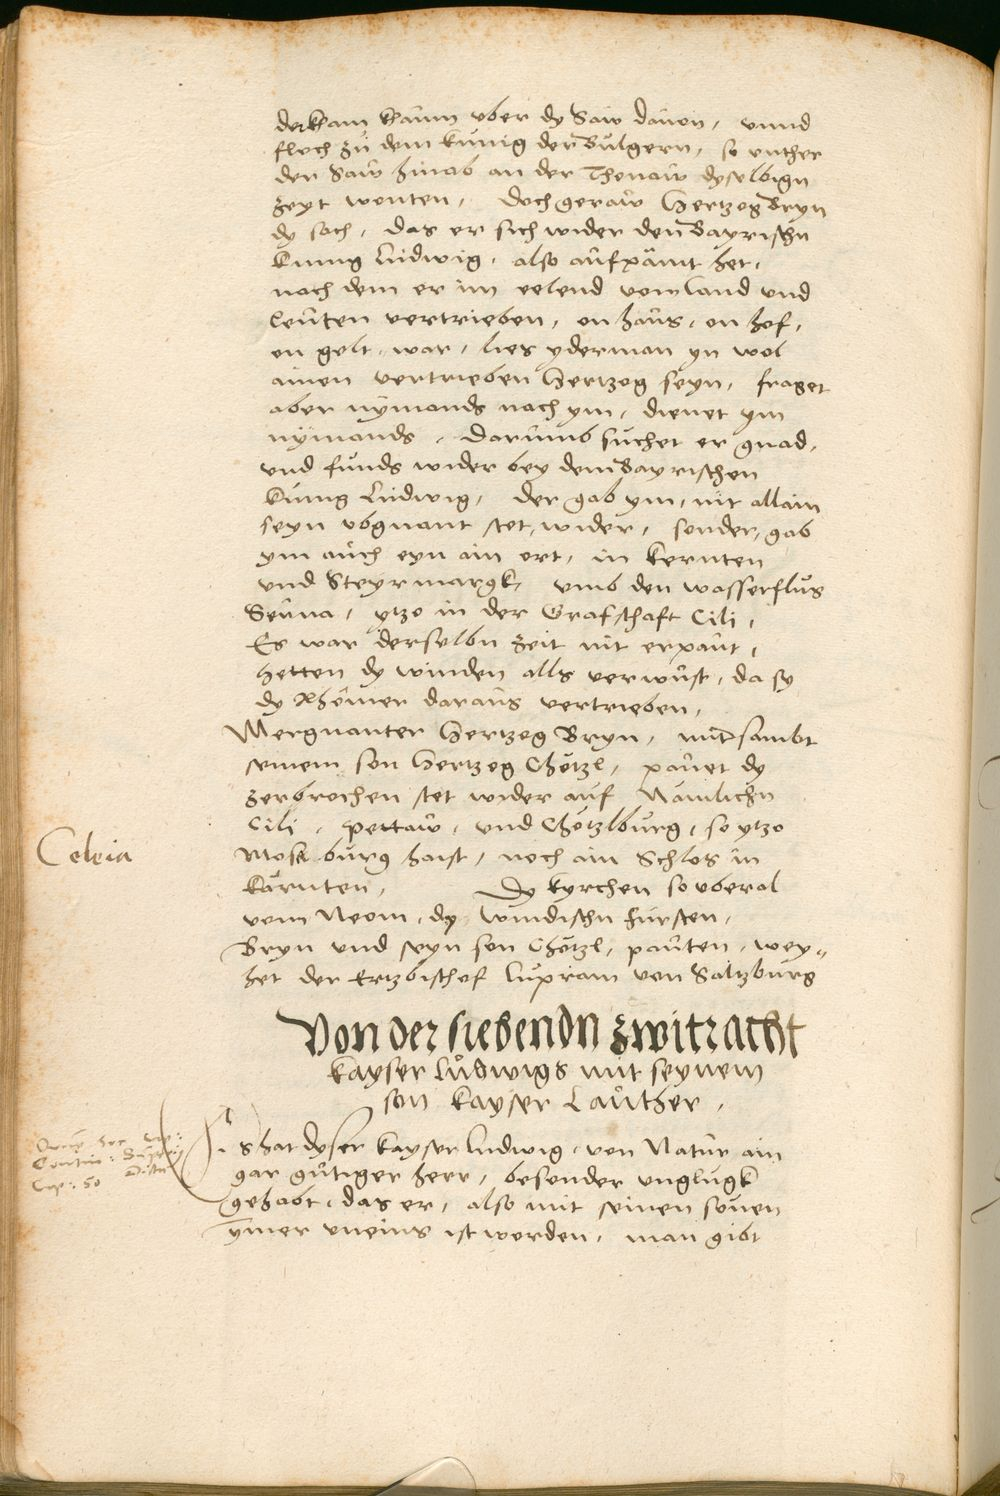 der kham khaum vber dy Saw dauon, vnnd
floch zu dem kunig der Bulgern, so vnther
der Saw hinab an der Thonaw dyselbign
zeyt wonten, doch geraw Hertzog Bryn
dy sach, das er sich wider den Bayrischn
kunig Ludwig, also aufpämt het,
nach dem er im eelend vom land vnd
leuten vertrieben, on haus, on hof,
on gelt, war, lies yderman yn wol
ainen vertrieben Hertzog seyn, fraget
aber nÿmands nach ym, dienet ym
nÿmands, Darumb suchet er gnad,
vnd funds wider bey dem Bayrischen
kunig Ludwig, der gab ym, nit allain
seyn obgnant stet, wider, sonder, gab
ym auch eyn ain ort, in kernten
vnd Steyrmargk, vmb den wasserflus
Seuna, ytzo in der Grafschaft Cili,
Es war derselbn zeit nit erpaut,
hetten dy winden alls verwust, da sy
dy Rhömer daraus vertrieben,
Mergnanter Hertzog Bryn, mit sambt
seinem son Hertzog Chötzl, pauet dy
zerbrochen stet wider auf Nämlichn
Cili, Pettaw, vnd Chötzlburg, so ytzo
Celeia
Mosburg haist, noch ain Schlos in
kärnten, Dy kyrchen so vberal
vom Neom, dy windischn fursten,
Bryn vnd seyn son Chötzl, pauten, wey=
het der Ertzbischof Lupram von Saltzburg
Von der siebendn zwitracht
kayser Ludwigs mit seynem
son kayser Lauther,
Es hat dyser kayser Ludwig, von Natur ain
gar gutiger herr, besonder vnglugk
Cap: 50
gehabt, das er, also mit seinen sönen
ymer vneins ist worden, man gibt